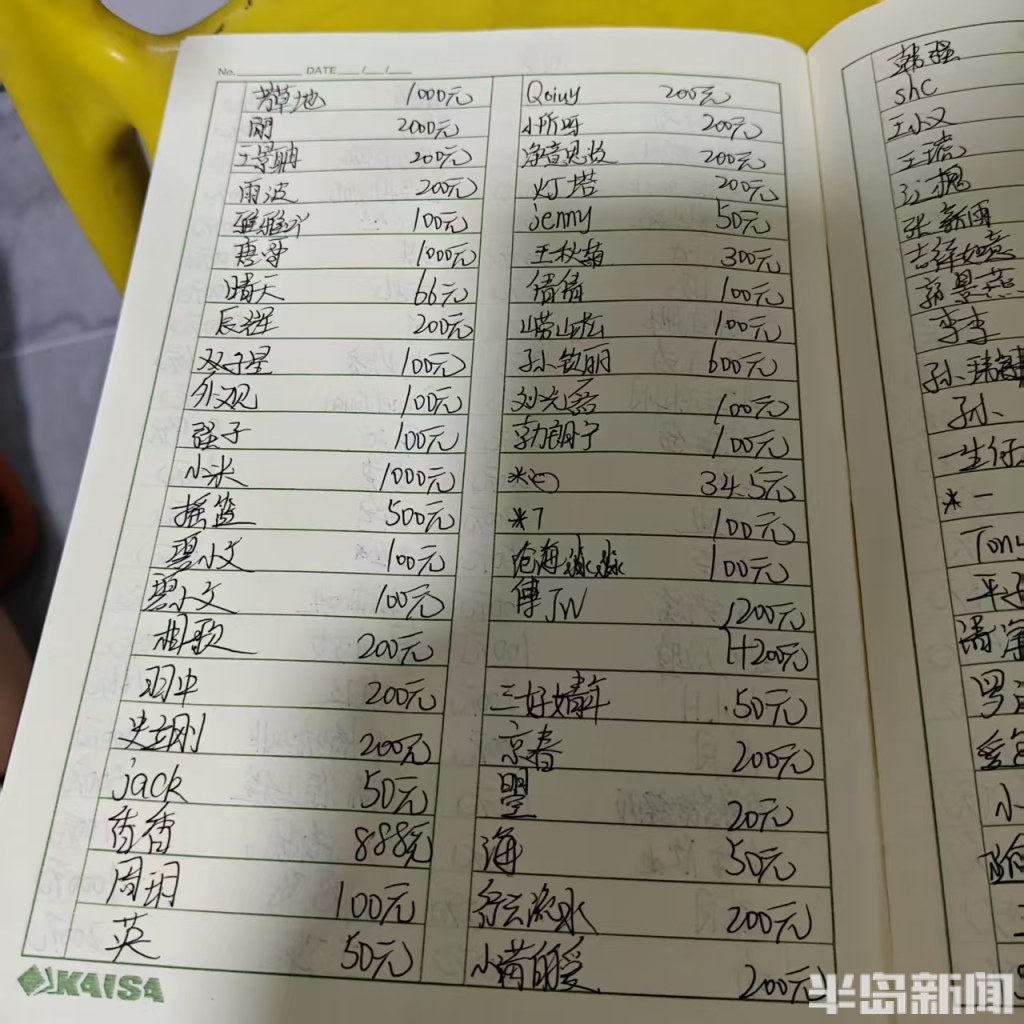 No. DATE / /
芳草地 1000元
丽 2000元
200元
雨波 200元
100元
1000元
晴天 66元
辰辉 200元
双子星 100元
外观 100元
强子 100元
小米 1000元
摇篮 500元
碧小文 100元
碧小文 100元
相歌 200元
羽中 200元
史刚 200元
jack 50元
香香 888元
周玥 100元
英 50元
KAISA
Qoiuy 200元
200元
200元
灯塔 200元
jenny 50元
王秋菊 300元
倩倩 100元
崂山坛 100元
孙钦丽 600元
刘光磊 100元
勃朗宁 100元
34.5元
*7 100元
沧海淼淼 100元
傅JW 200元
+200元
三好婧年 50元
京春 200元
曌 20元
海 50元
行云流水 200元
小黄的爱 200元
韩强
shc
王小义
王琥
张新雨
吉祥如意
郭景燕
李李
孙
孙
一生任
*一
Tony
平
小
半岛新闻